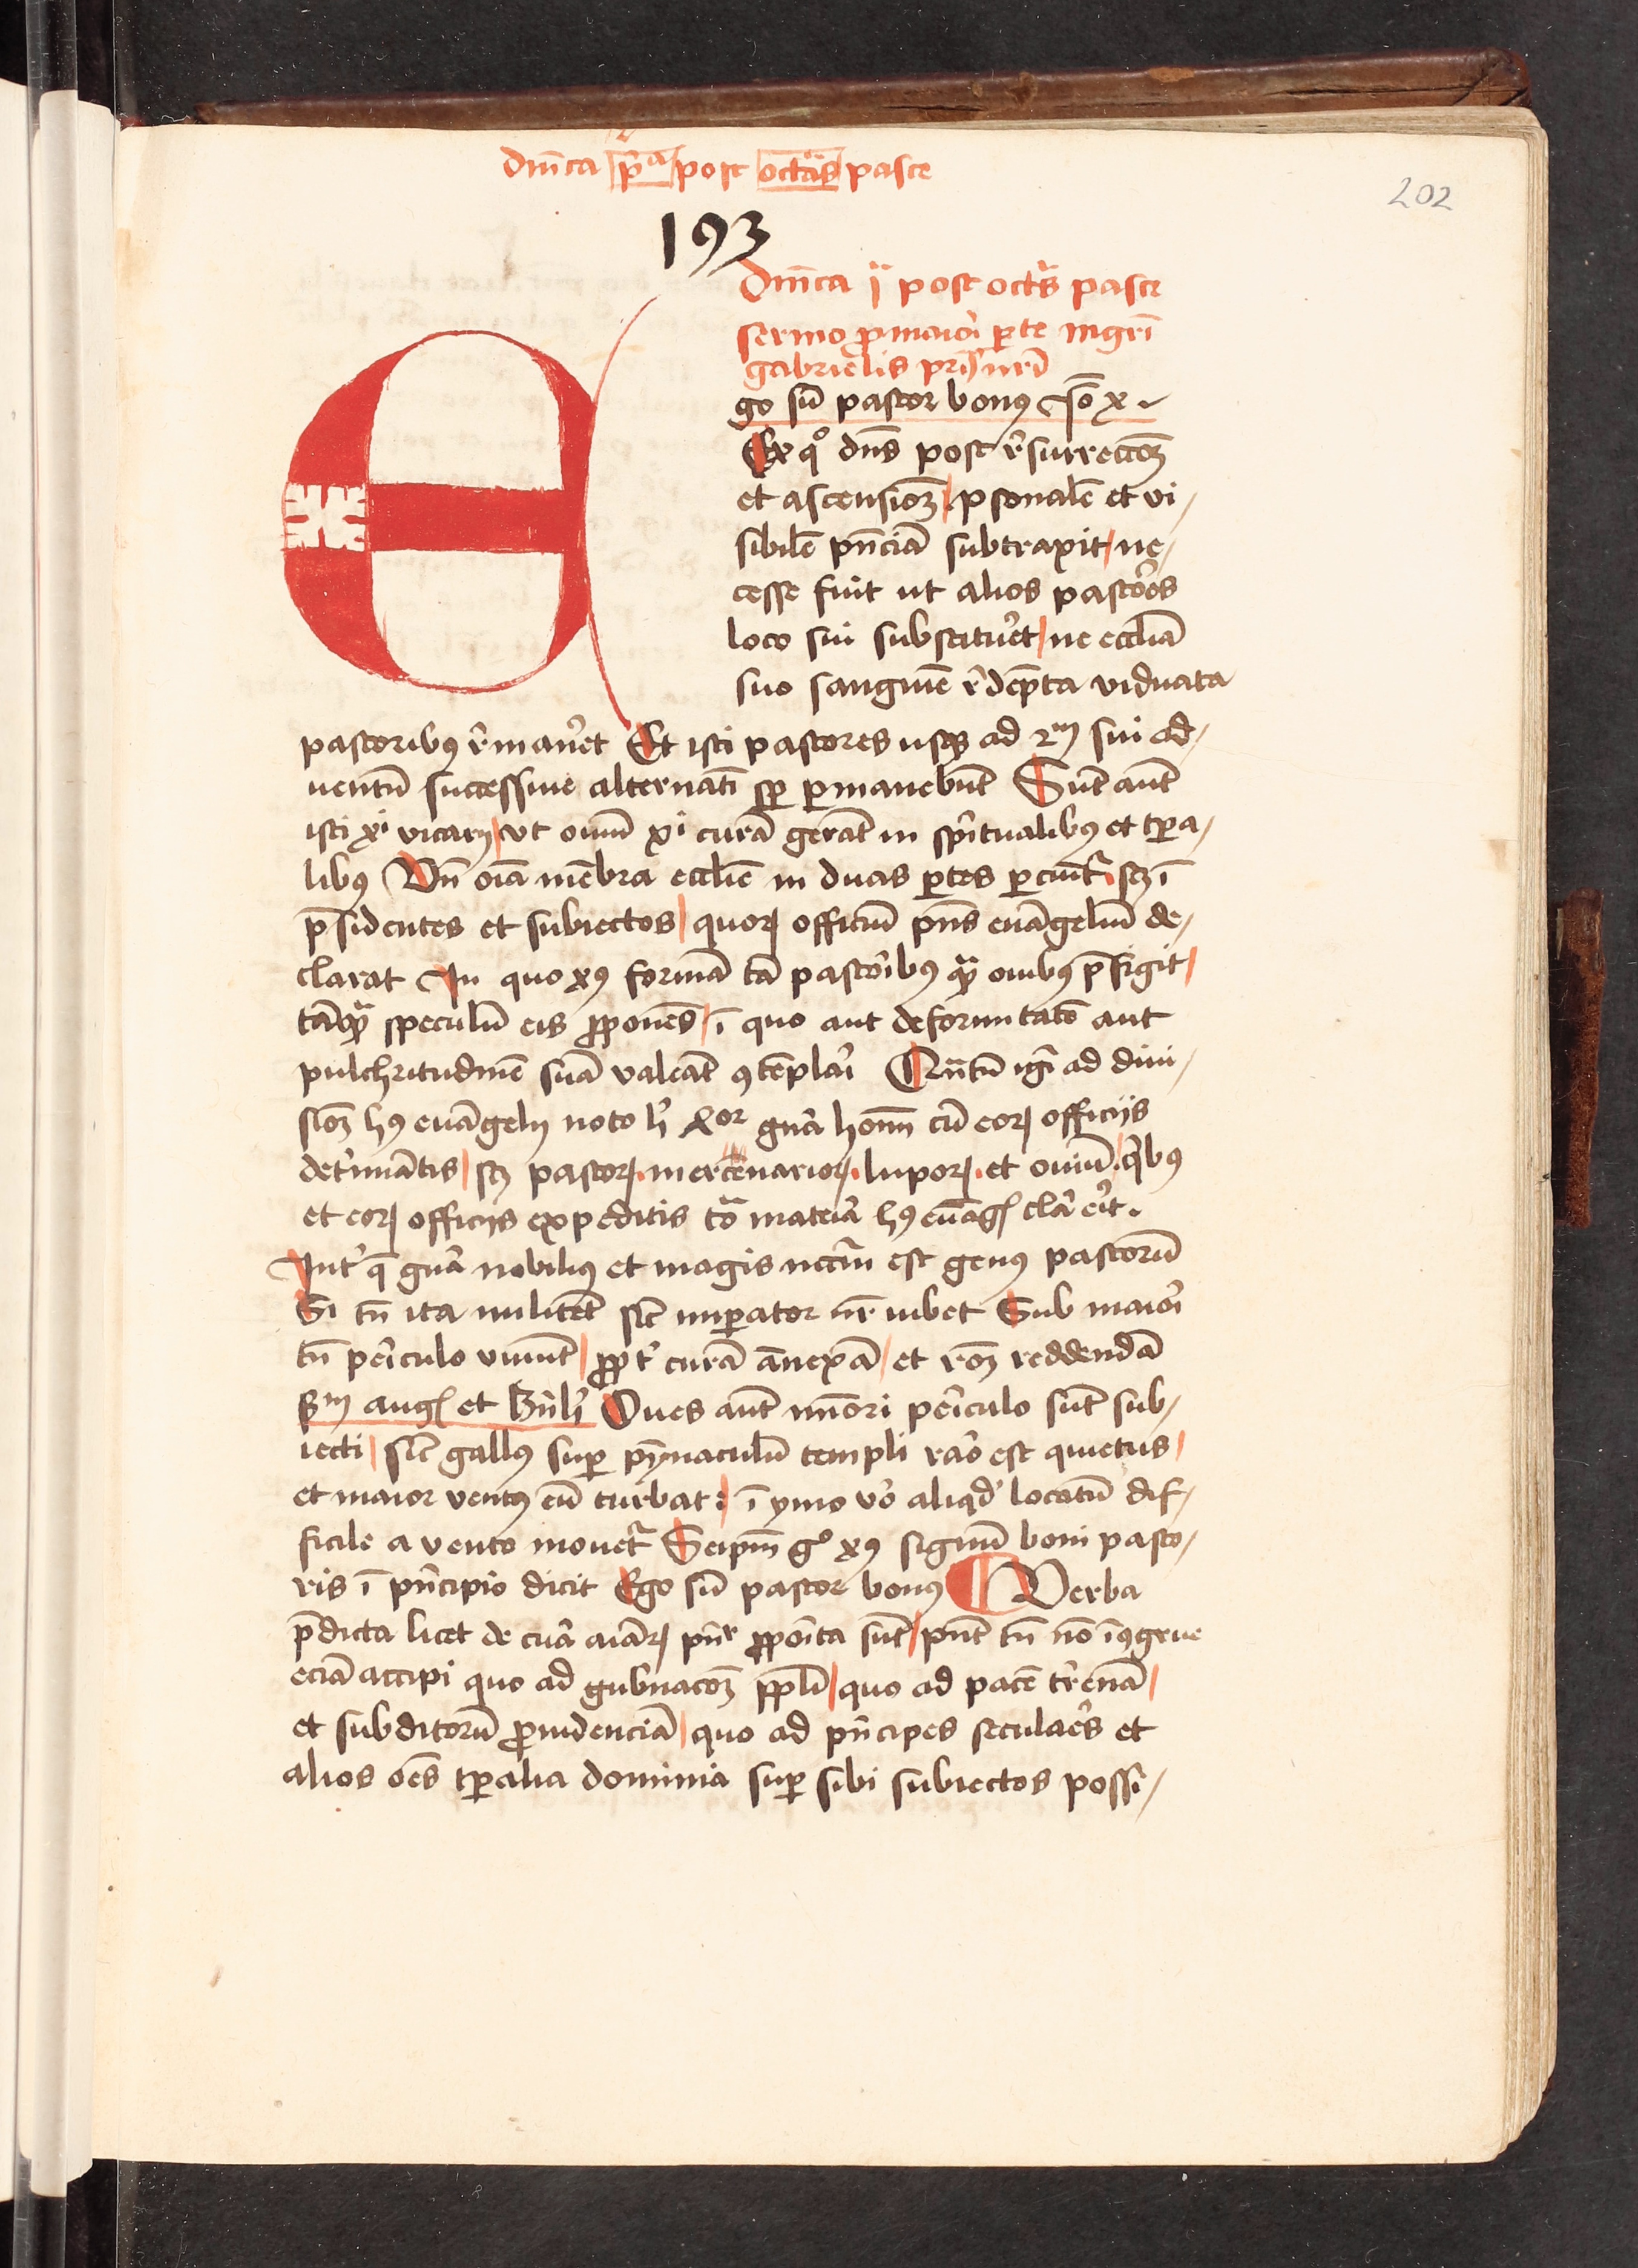 dm̄ca p̄ᵃ post octaͣs pasce
202
193
Dm̄ca ij post octᷓs pasce
sermo ꝓ maiori ꝑte mgr̄i
gabrielis pr̄is nr̄i
Ego su̅ pastor bonꝰ Io x
Ex qͦ dn̄s post resurrecco̅ꝫ
et ascensioꝫ ꝑsonale̅ et vi/
sibile̅ pn̄cia̅ subtraxit ne/
cesse fuit ut alios pastores
loco sui substitueret ne eccl̄ia̅
suo sanguīe rede̅pta viduata
pastoribꝰ remaneret Et isti pastores usqꝫ ad 2ᵐ sui ad/
uentu̅ successiue alternati̅ sp̲ ꝑmanebu̅t Su̅t aut̄
isti xp̄i vicarij vt ouiu̅ xp̄i cura̅ gera̅t in spiritualibꝰ et tp̲a/
libꝰ Vn̄ oi̅a me̅bra eccl̄ie in duas ꝑtes ꝑciu̅tᷣ scꝫ i̅
p̄sidentes et subiectos quoꝝ officiu̅ pn̄s eua̅geliu̅ de/
clarat In quo xp̄ꝰ forma̅ ta̅ pastoribꝰ qᷓꝫ ouibꝰ p̄figit
ta̅qᷓꝫ speculu̅ eis ꝓpone̅s i̅ quo aut deformitate̅ aut
pulchritudine̅ sua̅ valea̅t ꝯte̅plari Qn̄tu̅ igr̄ ad diui/
sioꝫ hꝰ eua̅gelij noto hic 4or gn̄a hoīm cu̅ eoꝝ officijs
det̓mina̅tis scꝫ pastoꝝ mercenarioꝝ luporꝝ et ouiu̅ qⁱbꝰ
et eoꝝ officijs expeditis to̅a materia hꝰ eua̅gl̄ clara erit
Int̓ que gn̄a nobiliꝰ et magis nccm̄ est genꝰ pastoru̅
Si tn̄ ita milite̅t sic̄ imꝑator nr̄ iubet Sub maiori
tn̄ periculo viuu̅t ꝓpt̓ cura̅ a̅nexa̅ et ro̅ꝫ reddenda̅
Sᵐ augꝰ et Bn̄h Oues aut̄ mīori periculo su̅t sub/
iecti sic̄ gallꝰ suꝑ pīnaculu̅ templi raro est quietus
et maior ventꝰ eu̅ turbat i̅ ymo v̓o aliqd̓ locatu̅ dif/
ficile a vento mouetᷣ Seipm̄ gͦ xp̄ꝰ signu̅ boni pasto/
ris i̅ pn̄cipio dicit Ego su̅ pastor bonꝰ ¶ Verba
p̄dicta licet de cura aīaꝝ pn̄r ꝓposita su̅t pn̄t tn̄ no̅ i̅ꝯgrue
ecia̅ accipi quo ad gub̓naco̅ꝫ ppl̄i quo ad pace̅ t̓rena̅
et subditoru̅ ꝓuidencia̅ quo ad pn̄cipes seculares et
alios oe̅s tp̲alia dominia suꝑ sibi subiectos possi/